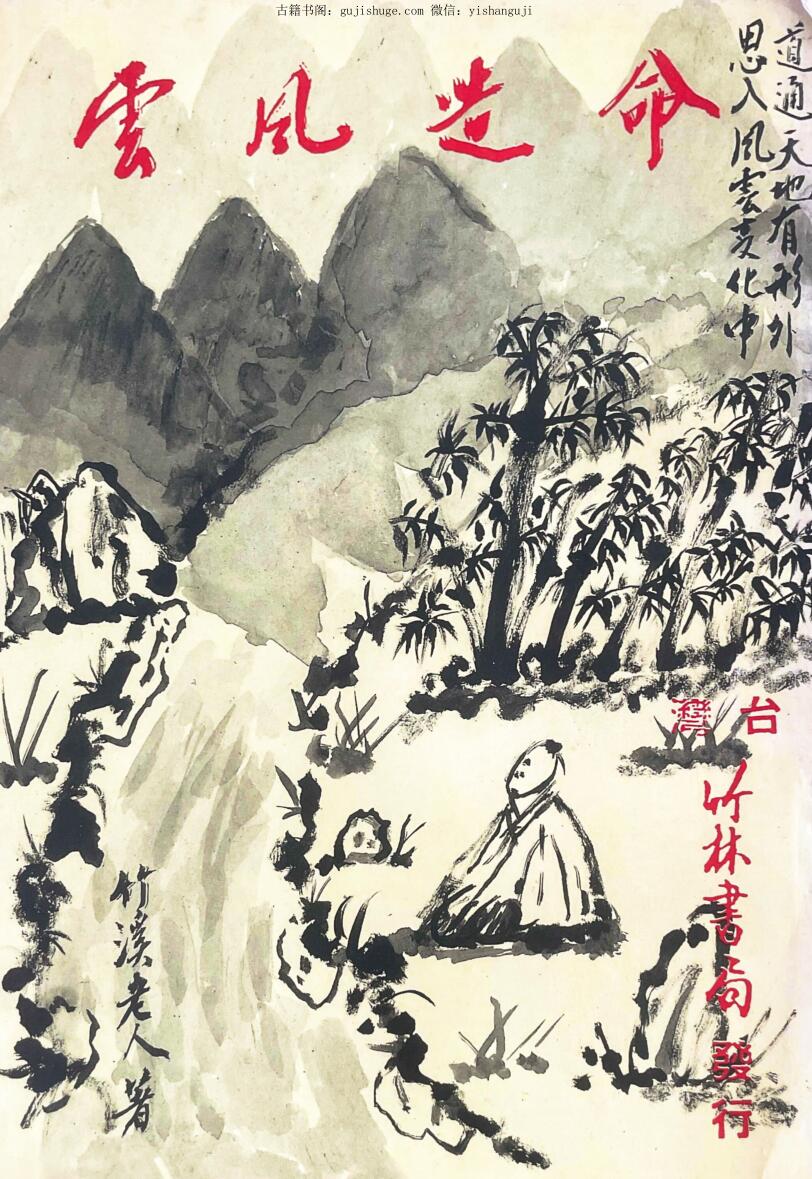 古籍书阁：gujishuge.com 微信：yishanguji
命造风雲
道通天地有形外
思入风雲变化中
台灣
竹林書局 發行
竹溪老人 著